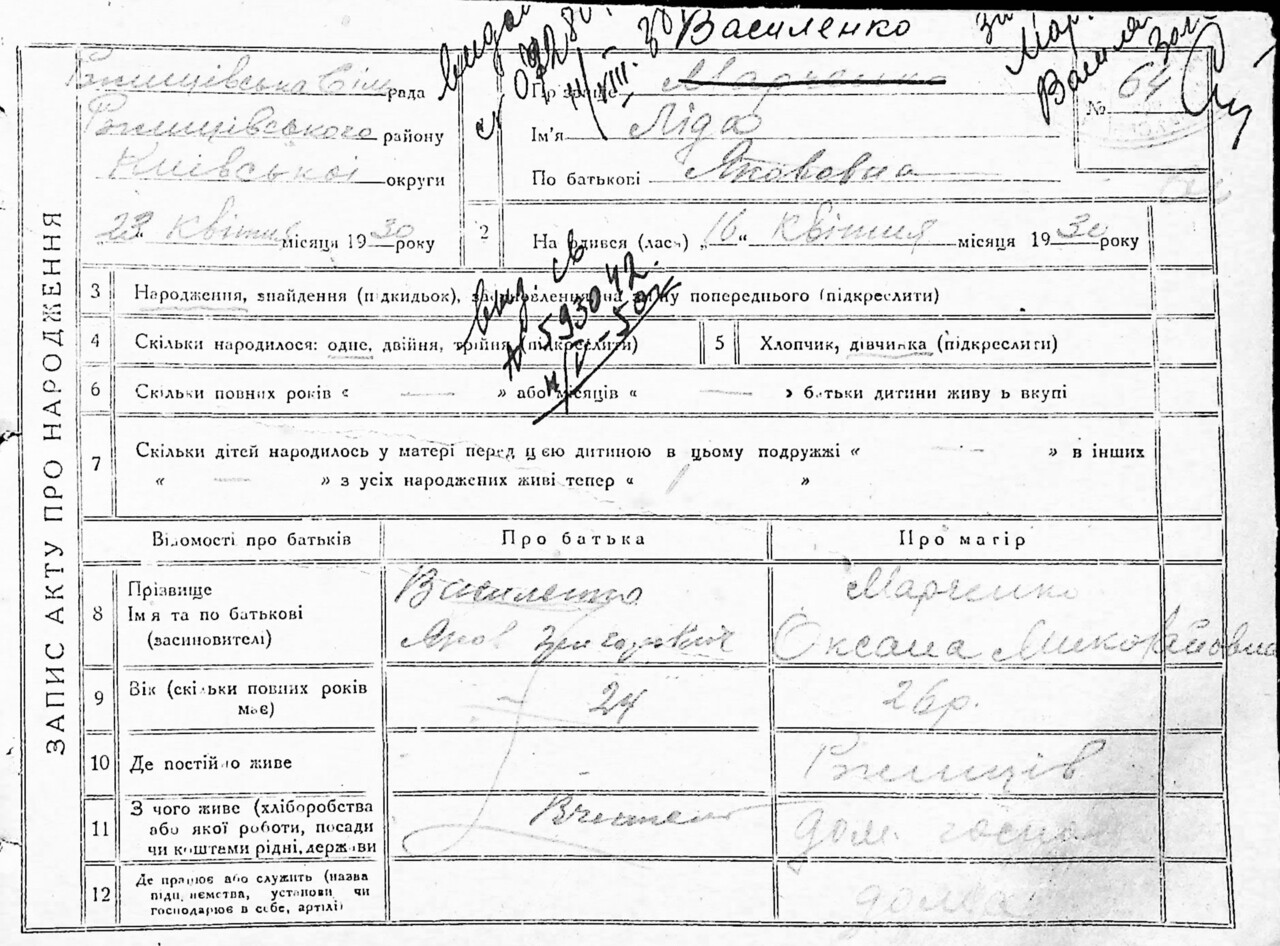 Василенко
Ржищівська Сіль рада
Ржищівського району
Київської округи
23 квітня місяця 1930 року
Прізвище Марченко
Ім'я Ліда
По батькові Якововна
№ 64
2 Народився (лась) „16“ квітня місяця 1930 року
ЗАПИС АКТУ ПРО НАРОДЖЕННЯ
3 Народження, знайдення (підкидьок), засновлення на зміну попереднього (підкреслити)
4 Скільки народилося: одне, двійня, трійня (підкреслити)
5 Хлопчик, дівчинка (підкреслити)
6 Скільки повних років « — » або місяців « — » батьки дитини живуь вкупі
7 Скільки дітей народилось у матері перед цією дитиною в цьому подружжі « — » в інших
« — » з усіх народжених живі тепер « »
вид св
№ 593042
Відомості про батьків Про батька Про матір
8 Прізвище
Імя та по батькові
(засиновителі)
Василенко
Яков Григорович
Марченко
Оксана Миколайовна
9 Вік (скільки повних років
має)
24
26 р.
10 Де постійно живе
Ржищів
11 З чого живе (хліборобства
або якої роботи, посади
чи коштами рідні, держави
Вчитель
дом. госпо
12 Де працює або служить (назва
підприємства, установи чи
господарює в себе, артілі)
дома